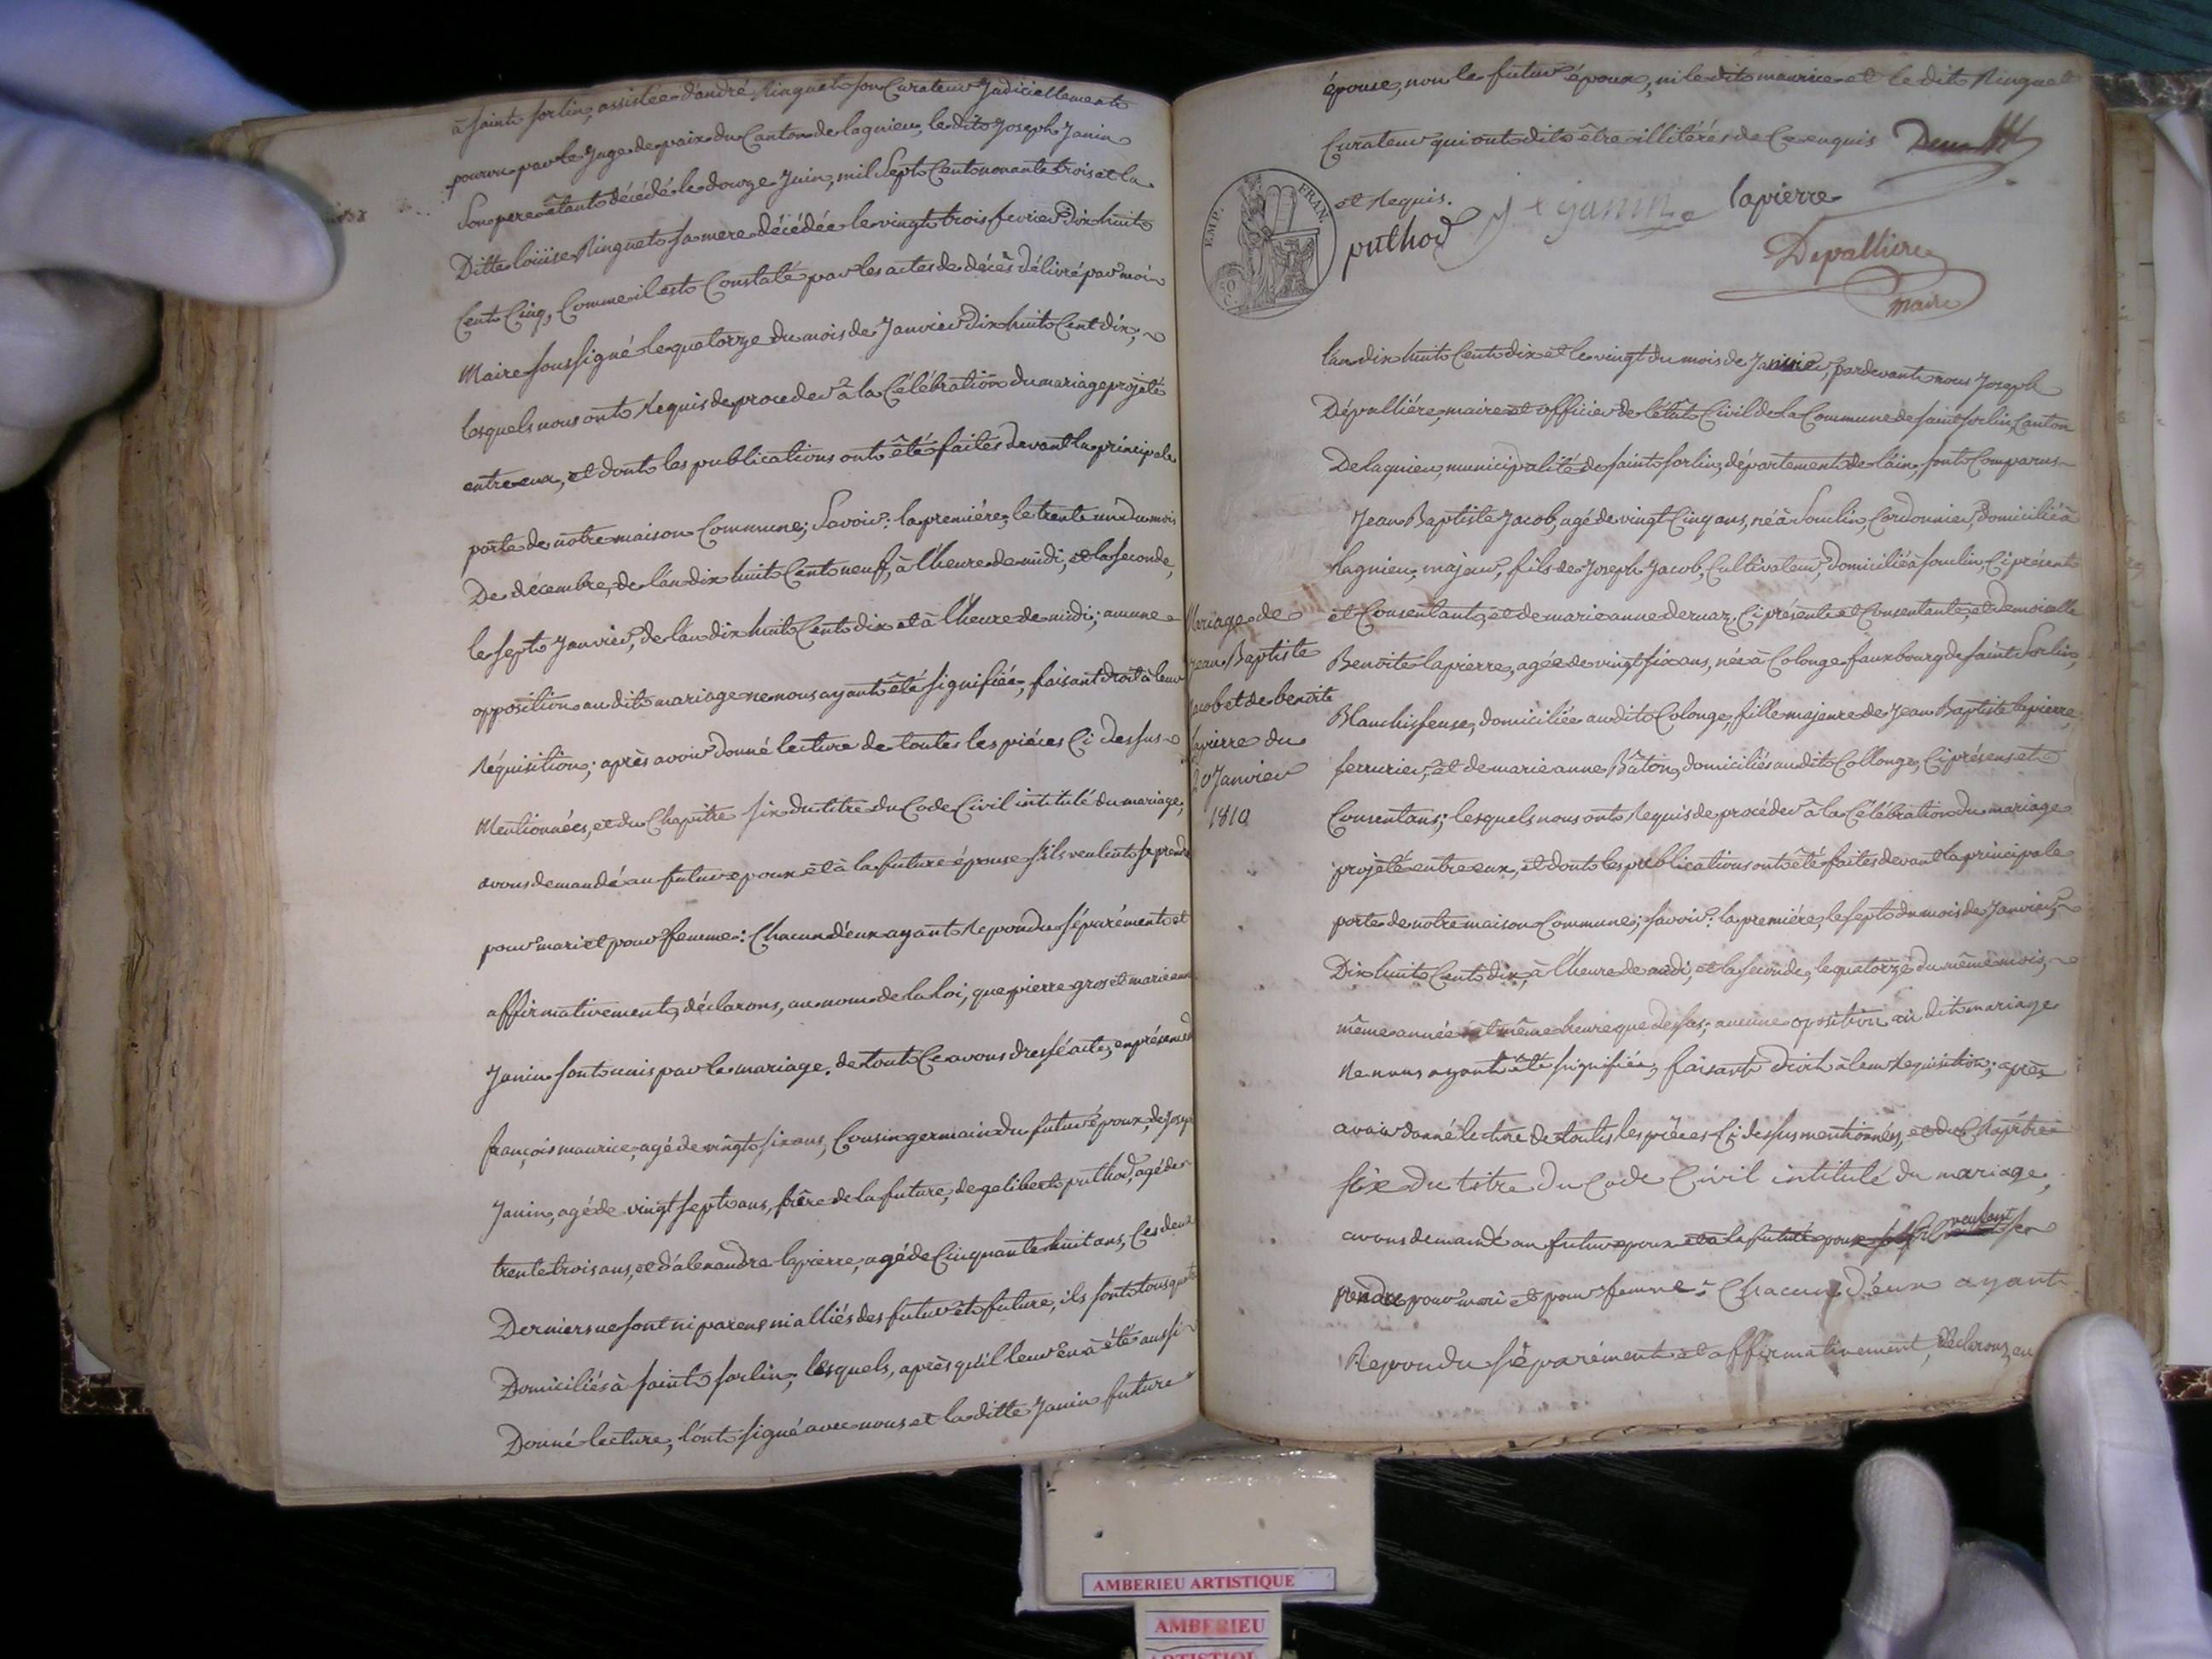 à saint sorlin, assistée d'andré Ringuet son Curateur Judiciellement
pourvu par le Juge de paix du Canton de lagnieu, le dit Joseph Janin
Son pere étant décédé le douze Juin, mil Sept Cent nonante trois et la
Ditte loüise Ringuet sa mere décédée le vingt trois fevrier Dix huit
Cent Cinq, Comme il est Constaté par les actes de décès délivré par moi
Maire soussigné le quatorze du mois de Janvier dix huit Cent dix;
lesquels nous ont Requis de proceder à la Célébration du mariage projeté
entre eux, et dont les publications ont été faites devant la principale
porte de notre maison Commune; Savoir: la première, le trente un du mois
De décembre, de l'an dix huit Cent neuf, à l'heure de midi, et la seconde,
le sept Janvier, de l'an dix huit Cent dix et à l'heure de midi; aucune
opposition au dit mariage ne nous ayant été signifiée, faisant droit à leur
Réquisition; après avoir donné lecture de toutes les piéces Ci dessus
Mentionnées, et du Chapitre six du titre du Code Civil intitulé du mariage,
avons demandé au futur epoux et à la future épouse s'ils veulent se prendre
pour mari et pour femme: Chacun d'eux ayant Repondu séparément et
affirmativement, déclarons, au nom de la loi, que pierre gros et marie
Janin sont unis par le mariage, de tout Ce avons dressé acte, en présence de
françois maurice, agé de vingt six ans, Cousin germain du futur époux, de
Janin, agé de vingt sept ans, frère de la future, de galibert puthod, agé de
trente trois ans, et d'alexandre lapierre, agé de Cinquante huit ans, Ces deux
Derniers ne sont ni parens ni alliés des futur et future, ils sont tous quatre
Domiciliés à saint sorlin; lesquels, après qu'il leur en à été aussi
Donné lecture, l'ont signé avec nous et la ditte Janin future
épouse, non le futur époux, ni le dit maurice et le dit Ringuet
Curateur qui ont dit être illitérés de Ce enquis
et Requis.
EMP. FRAN.
50 C.
puthod
J + janin
lapierre
Depalliere
maire
Mariage de
Jean Baptiste
Jacob et de benoite
lapierre du
20 Janvier
1810
l'an dix huit Cent dix et le vingt du mois de Janvier, pardevant nous Joseph
Dépalliére, maire et officier de l'état Civil de la Commune de saint sorlin, Canton
De lagnieu, municipalité de saint sorlin, département de l'ain, sont Comparus
Jean Baptiste Jacob, agé de vingt Cinq ans, né à Souclin, Cordonnier, domicilié à
lagnieu, majeur, fils de Joseph Jacob, Cultivateur, domicilié à souclin, Ci présent
et Consentant, et de marie anne dernaz, Ci présente et Consentante, et Demoiselle
Benoite lapierre, agée de vingt six ans, née à Colonge fauxbourg de saint Sorlin,
Blanchisseuse, domiciliée au dit Colonge, fille majeure de Jean Baptiste lapierre,
serrurier, et de marie anne Bâton, domiciliés au dit Collonge, Ci présens et
Consentans; lesquels nous ont Requis de procéder à la Célébration du mariage
projété entre eux, et dont les publications ont été faites devant la principale
porte de notre maison Commune; savoir: la première, le sept du mois de Janvier,
Dix huit Cent dix, à l'heure de midi, et la seconde, le quatorze du même mois,
même année et même heure que dessus; aucune oposition au dit mariage
Ne nous ayant été signifiée, faisant droit à leur Requisition; après
avoir donné lecture de toutes les pièces Ci dessus mentionnées, et du Chapitre
six du titre du Code Civil intitulé du mariage,
avons demandé au futur epoux et à la future epouse s'ils veulent se
prendre pour mari et pour femme: Chacun d'eux ayant
Repondu séparément et affirmativement, déclarons, au
AMBERIEU ARTISTIQUE
AMBERIEU
ARTISTIQUE